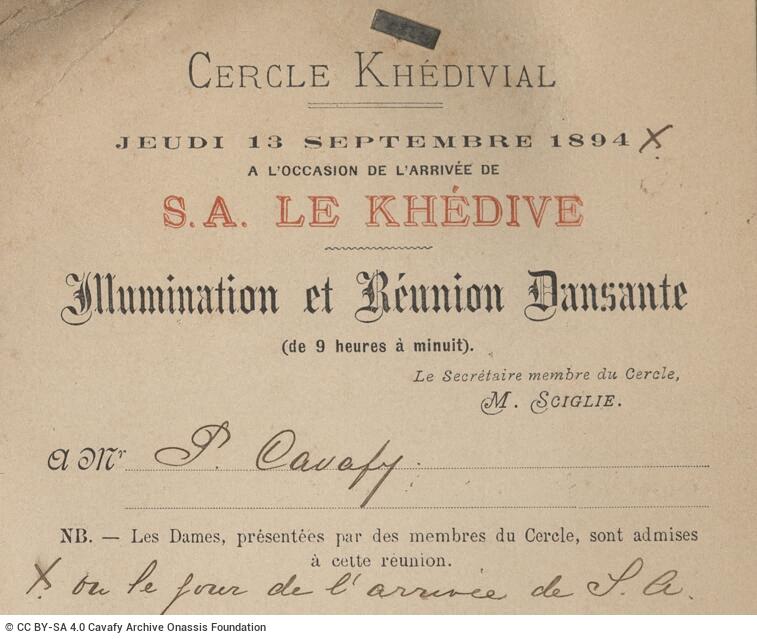 CERCLE KHÉDIVIAL
JEUDI 13 SEPTEMBRE 1894 X
A L'OCCASION DE L'ARRIVÉE DE
S.A. LE KHÉDIVE
Illumination et Réunion Dansante
(de 9 heures à minuit).
Le Secrétaire membre du Cercle,
M. SCIGLIE.
A Mr P. Cavafy
NB. — Les Dames, présentées par des membres du Cercle, sont admises
à cette réunion.
X ou le jour de l'arrivée de S. A.
© CC BY-SA 4.0 Cavafy Archive Onassis Foundation